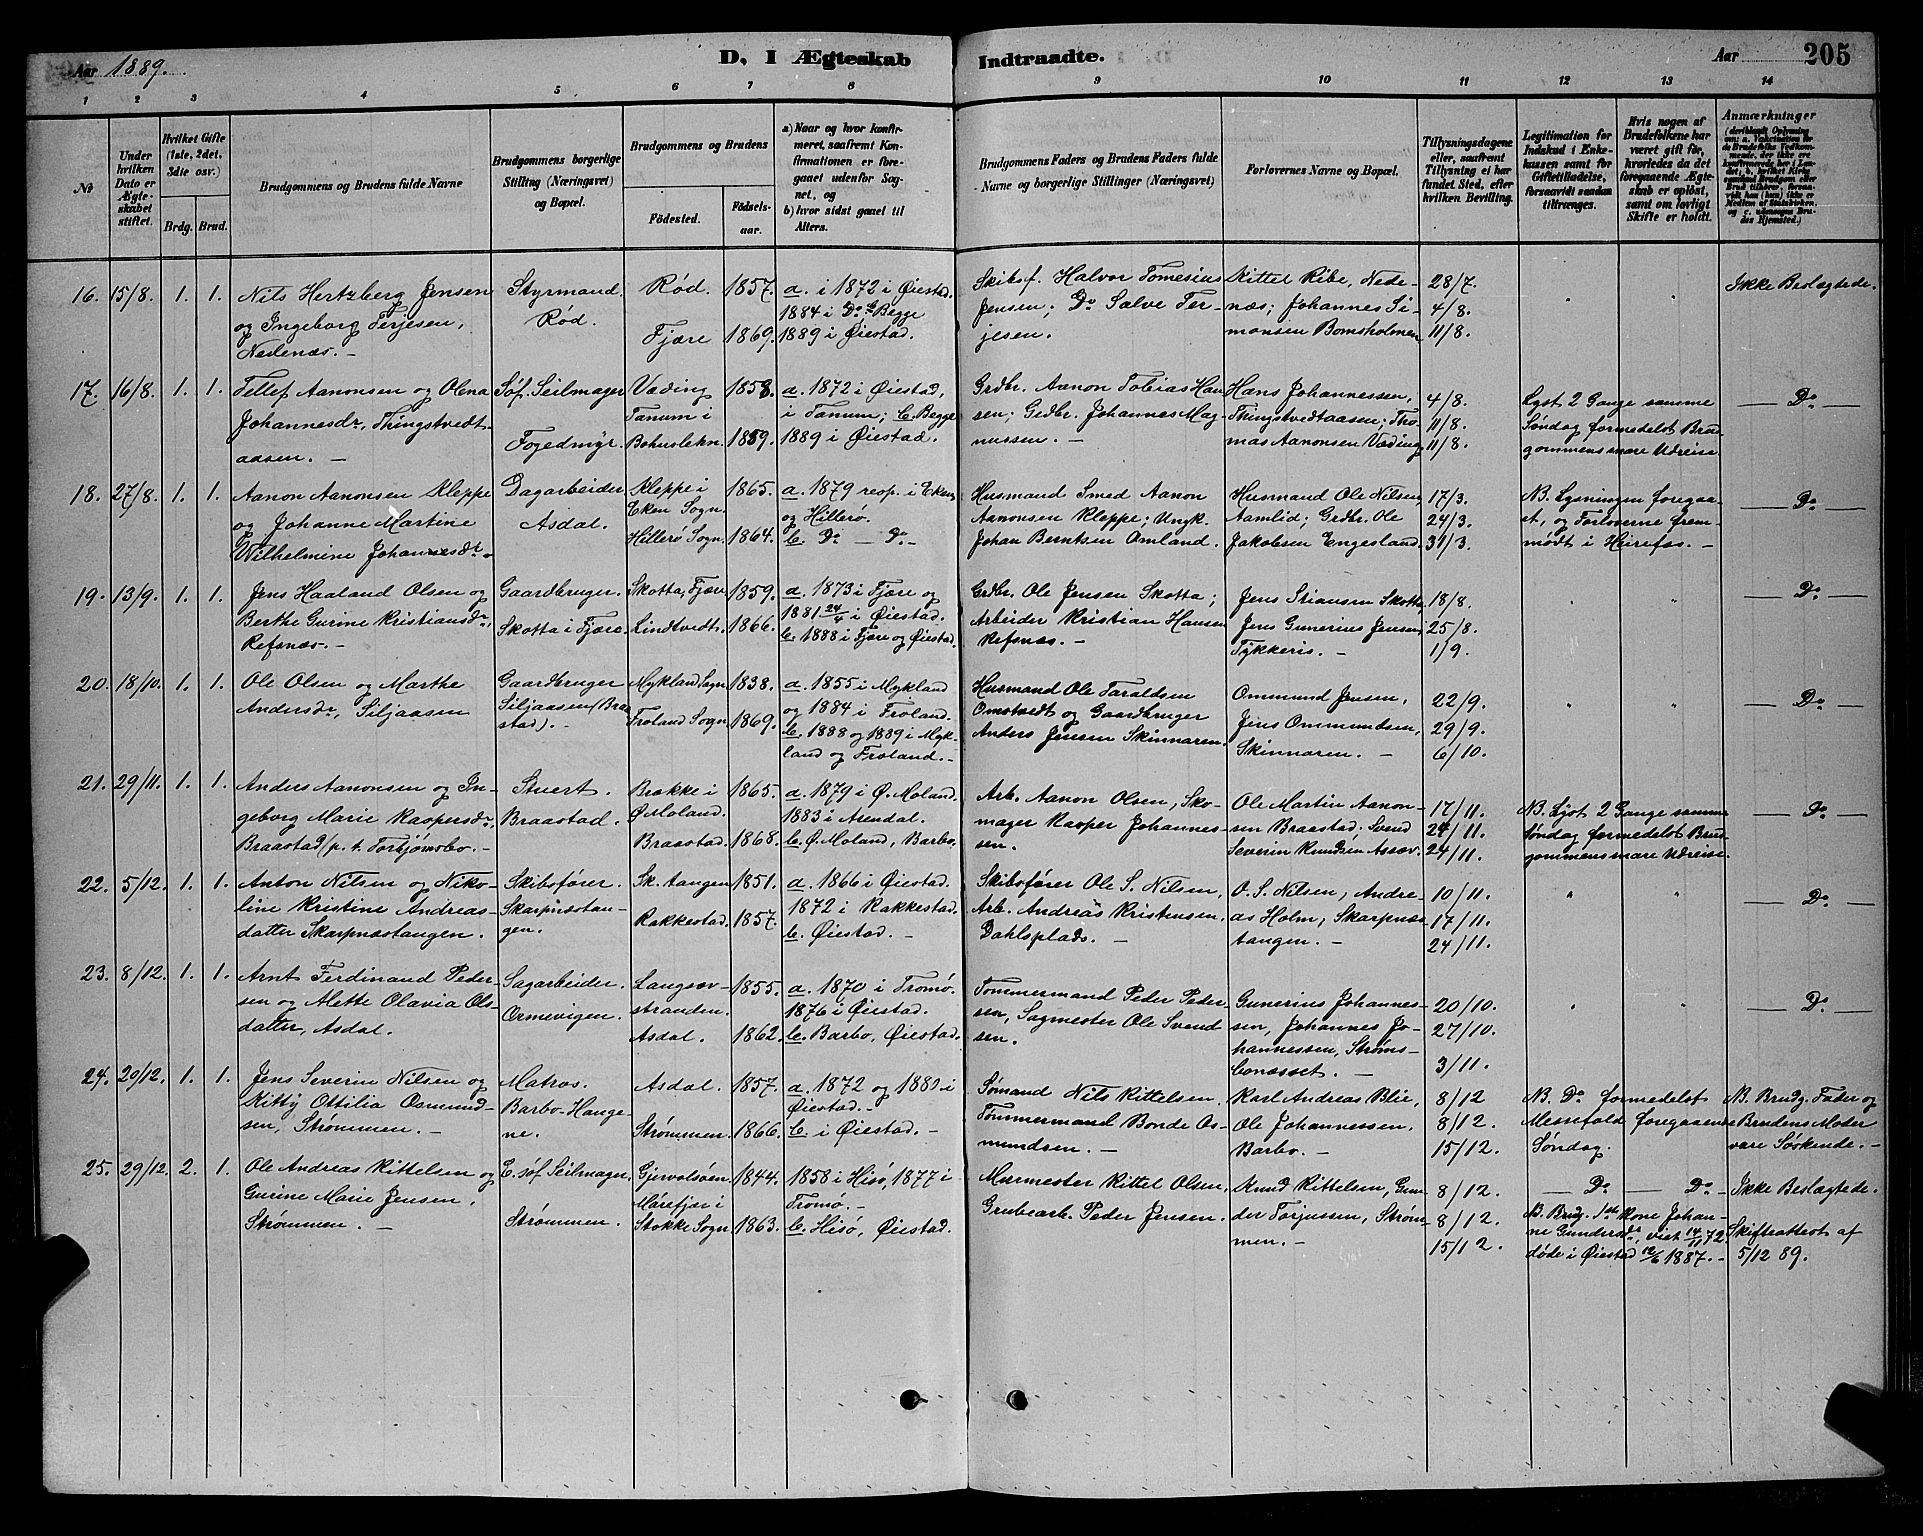 Aar 1889.
D, I Ægteskab Indtraadte.
Aar
205
1 2 3 4 5 6 7 8 9 10 11 12 13 14
№
Under hvilken Dato er Ægteskabet stiftet.
Hvilket Gifte (1ste, 2det, 3die osv.)
Brdg. Brud.
Brudgommens og Brudens fulde Navne
Brudgommens borgerlige Stilling (Næringsvei) og Bopæl.
Brudgommens og Brudens
Fødested.
Fødselsaar.
a) Naar og hvor konfirmeret, saafremt Konfirmationen er foregaaet udenfor Sognet, og
b) hvor sidst gaaet til Alters.
Brudgommens Faders og Brudens Faders fulde Navne og borgerlige Stillinger (Næringsvei)
Forlovernes Navne og Bopæl.
Tillysningsdagene eller, saafremt Tillysning ei har fundet Sted, efter hvilken Bevilling.
Legitimation for Indskud i Enkekassen samt for Giftetilladelse, forsaavidt saadan tiltrænges.
Hvis nogen af Brudefolkene har været gift før, hvorledes da det foregaaende Ægteskab er opløst, samt om lovligt Skifte er holdt.
Anmærkninger
16. 15/8. 1. 1.
Nils Hertzberg Jensen
og Ingeborg Terjesen,
Nedenæs. —
Styrmand.
Rød.
Rød. 1857.
Fjære 1869.
a. i 1872 i Øiestad.
1884 i Do. C. Begge
1889 i Øiestad.
Skibsf. Halvor Tomesius
Jensen; Do Salve Terjesen.
Kittel Ribe, Nedenæs; Johannes Simonsen Bomsholmen
28/7.
4/8.
11/8.
Ikke Beslægtede.
17. 16/8. 1. 1.
Tellef Aanonsen og Olena
Johannesdr, Thingstvedt
aasen. —
Søf. Seilmager
Fogedmyr.
Væding 1858.
Tanum i
Bohuslehn. 1859.
a. 1872 i Øiestad,
i Tanum; C. Begge
1889 i Øiestad.
Grdbr. Aanon Tobias Hansen; Grdbr. Johannes Magnussen. —
Hans Johannessen,
Thingstvedtaasen; Thomas Aanonsen Væding
4/8.
11/8.
11/8.
Lyst 2 Gange samme
Søndag formedelst Brudgommens nære Udreise.
— Do —
18. 27/8. 1. 1.
Aanon Aanonsen Kleppe
og Johanne Martine
Wilhelmine Johannesdr.
Dagarbeider
Asdal.
Kleppe i 1865.
Eken Sogn.
Hillerø Sogn. 1864.
a. 1879 resp. i Eken
og Hillerø.
C. Do — Do —
Husmand Smed Aanon
Aanonsen Kleppe; Ungk.
Johan Berntsen Omland.
Husmand Ole Nilsen,
Aamlid; Grdbr. Ole
Jakobsen Engesland.
17/3.
24/3.
31/3.
N.B. Lysningen foregaaet, og Forloverne fremmødt i Heirefos. —
— Do —
19. 13/9. 1. 1.
Jens Haaland Olsen og
Berthe Gurine Kristiansdr,
Refsnæs. —
Gaardbruger.
Skotta i Fjære.
Skotta, Fjære 1859.
Lindtvedt. 1866.
a. 1873 i Fjære og
1881 24/4 i Øiestad.
C. 1888 i Fjære og Øiestad.
Grdbr. Ole Jensen Skotta;
Arbeider Kristian Hansen
Refsnæs. —
Jens Stiansen Skotta,
Jens Gunerius Jensen,
Tykkeris. —
18/8.
25/8.
1/9.
— Do —
20. 18/10. 1. 1.
Ole Olsen og Marthe
Andersdr, Siljaasen
Gaardbruger
Siljaasen (Braastad). —
Mykland Sogn 1838.
Froland Sogn 1869.
a. 1855 i Mykland
og 1884 i Froland.
C. 1888 og 1889 i Mykland og Froland. —
Husmand Ole Taraldsen
Omstvedt og Gaardbruger
Anders Jensen Skinnaren.
Ommund Jensen,
Jens Ommundsen,
Skinnaren. —
22/9.
29/9.
6/10.
— Do —
21. 29/11. 1. 1.
Anders Aanonsen og Ingeborg Marie Kaspersdr,
Braastad (p. t. Torbjørnsbo. —
Stuert.
Braastad.
Brække i 1865.
Ø. Moland.
Braastad. 1868.
a. 1879 i Ø. Moland.
1883 i Arendal.
C. Ø. Moland, Barbo.
Arb. Aanon Olsen, Skomager Kasper Johannessen.
Ole Martin Aanonsen Braastad; Svend
Severin Knudsen Assev.
17/11.
24/11.
24/11.
N.B. Lyst 2 Gange samme
Søndag formedelst Brudgommens nære Udreise.
— Do —
22. 5/12. 1. 1.
Anton Nilsen og Nikoline Kristine Andreasdatter Skarpnæstangen.
Skibsfører.
Skarpnæstangen.
Sk. tangen 1851.
Rakkestad. 1857.
a. 1866 i Øiestad.
1872 i Rakkestad.
C. Øiestad. —
Skibsfører Ole S. Nilsen,
Arb. Andreas Kristensen,
Dahlsplads. —
O. S. Nilsen, Andreas Holm; Skarpnæstangen. —
10/11.
17/11.
24/11.
— Do —
23. 8/12. 1. 1.
Arnt Ferdinand Pedersen og Alette Olavia Olsdatter, Asdal.
Sagarbeider.
Ormevigen.
Langsævstranden. 1855.
Asdal. 1862.
a. 1870 i Tromø.
1876 i Øiestad.
C. Barbo, Øiestad.
Tømmermand Peder Pedersen, Sagmester Ole Svendsen.
Gunerius Johannessen, Johannes Johannessen, Strømsbonæsset. —
20/10.
27/10.
3/11.
— Do —
24. 29/12. 1. 1.
Jens Severin Nilsen og
Kitty Ottilia Osmundsen, Strømmen. —
Matros.
Barbo-Hangene.
Asdal. 1857.
Strømmen. 1866.
a. 1872 og 1880 i
Øiestad. —
C. i Øiestad. —
Sømand Nils Kittelsen,
Tømmermand Bonde Osmundsen. —
Karl Andreas Blie,
Ole Johannessen,
Barbo. —
8/12
8/12.
15/12.
N.B. Do formedelst
Messefald foregaaende
Søndag.
N.B. Brudg. Fader og
Brudens Moder
vare Søskende. —
25. 29/12. 2. 1.
Ole Andreas Kittelsen og
Gurine Marie Jensen,
Strømmen. —
E. søf. Seilmager,
Strømmen.
Gjervolsøen. 1844.
Mørefjær i
Stokke Sogn 1863.
1858 i Hisø, 1877 i
Tromø. —
C. Hisø, Øiestad.
Murmester Kittel Olsen,
Grubearb. Peder Jensen.
Knud Kittelsen, Gunder Torjussen, Strømmen. —
8/12.
8/12.
15/12.
— Do — Do —
N.B. Brudg. 1ste Kone Johanne Gundersdr, viet 14/11 72.
døde i Øiestad 12/6 1887. —
Ikke Beslægtede.
Skifteattest af
5/12 89.